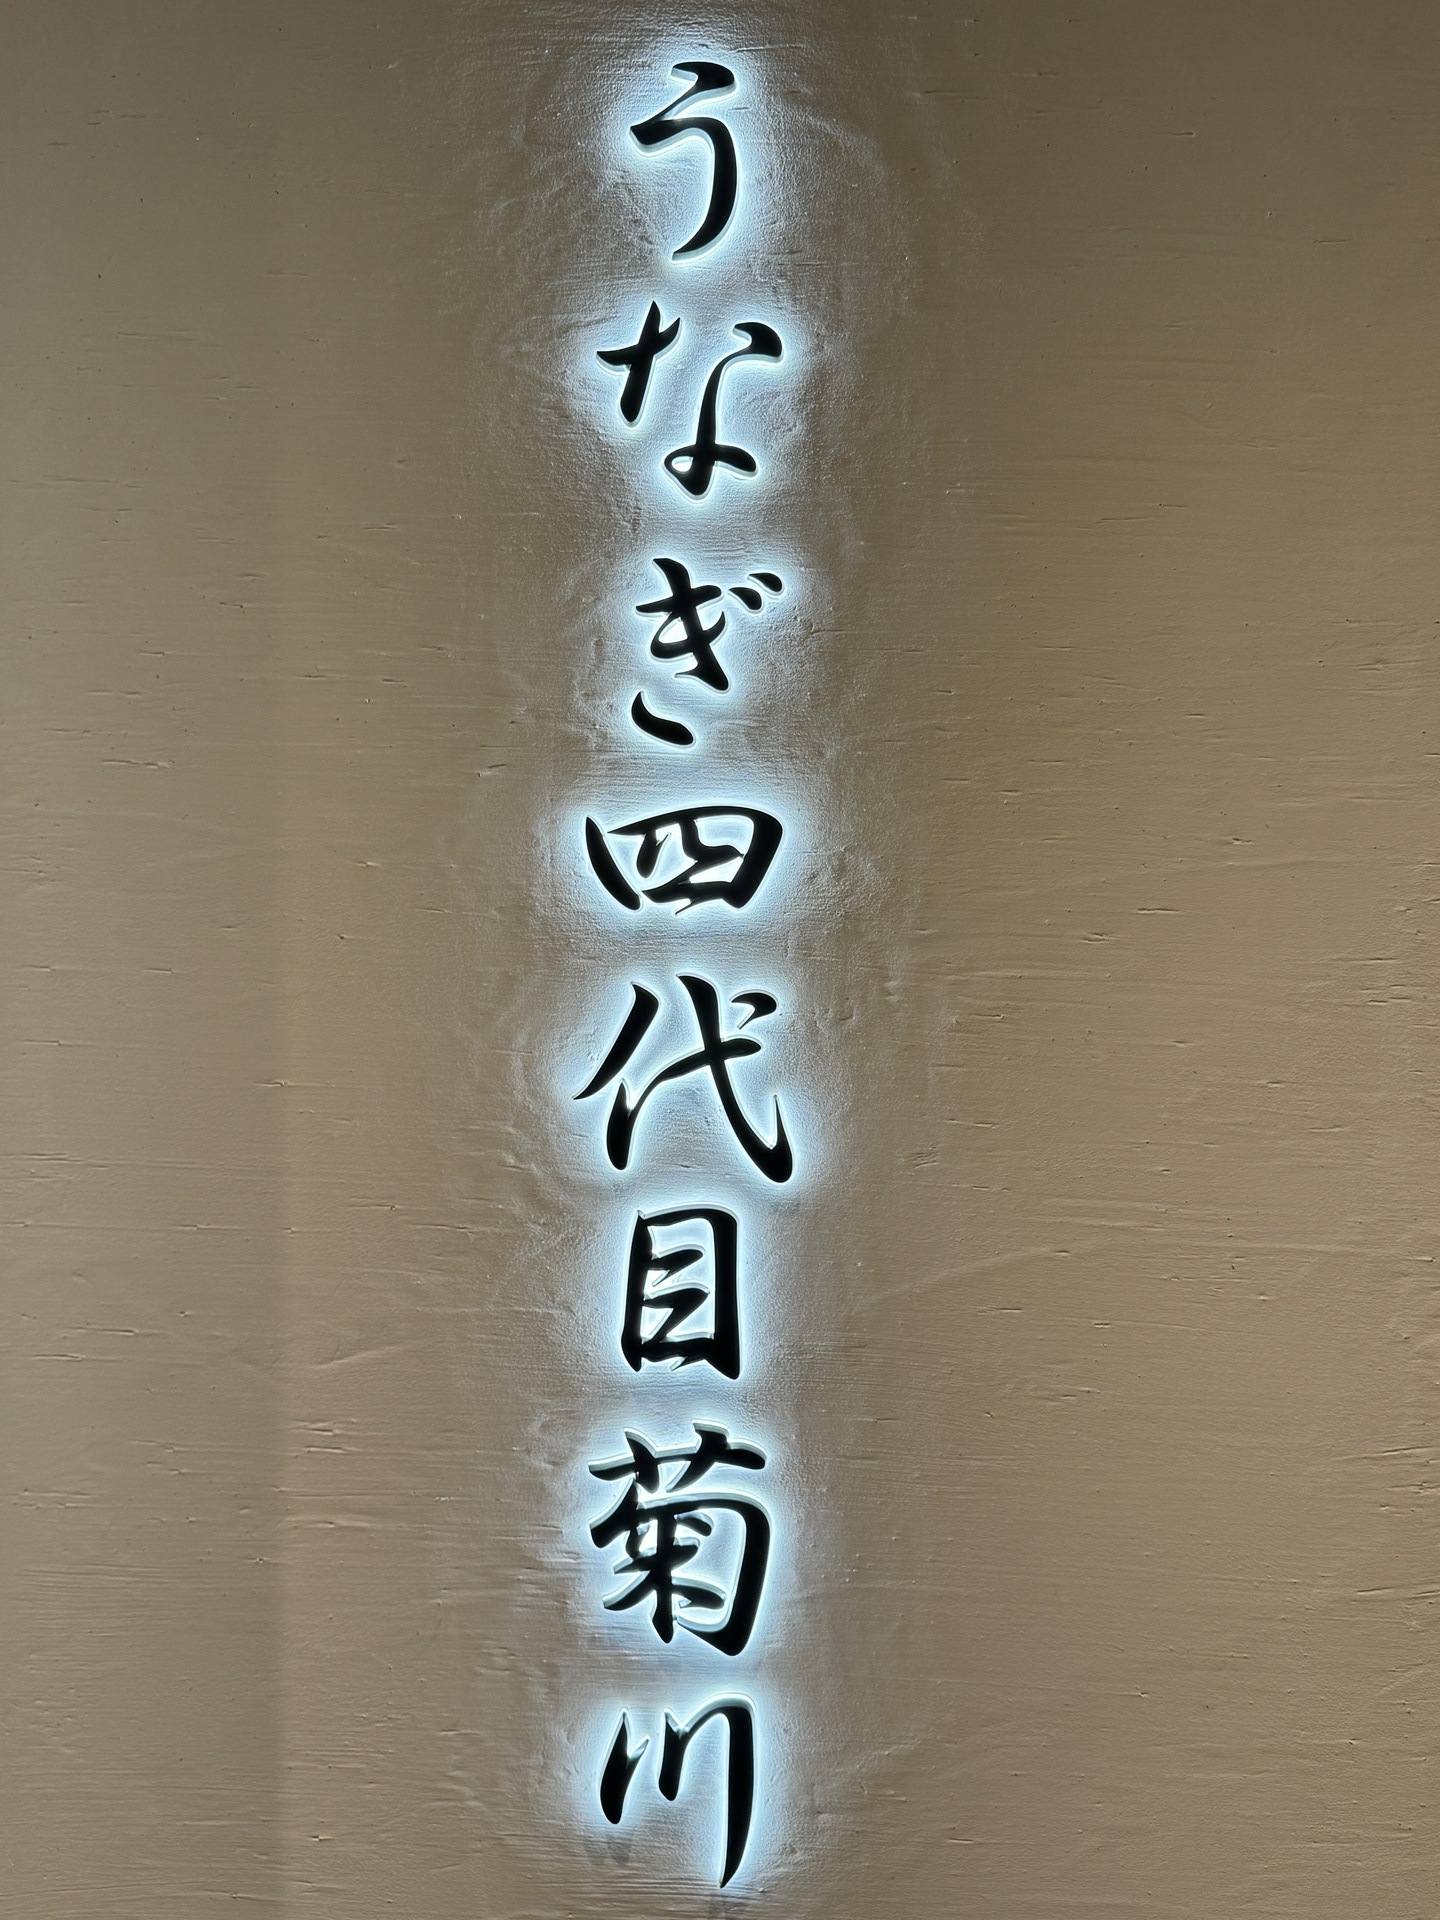 うなぎ四代目菊川